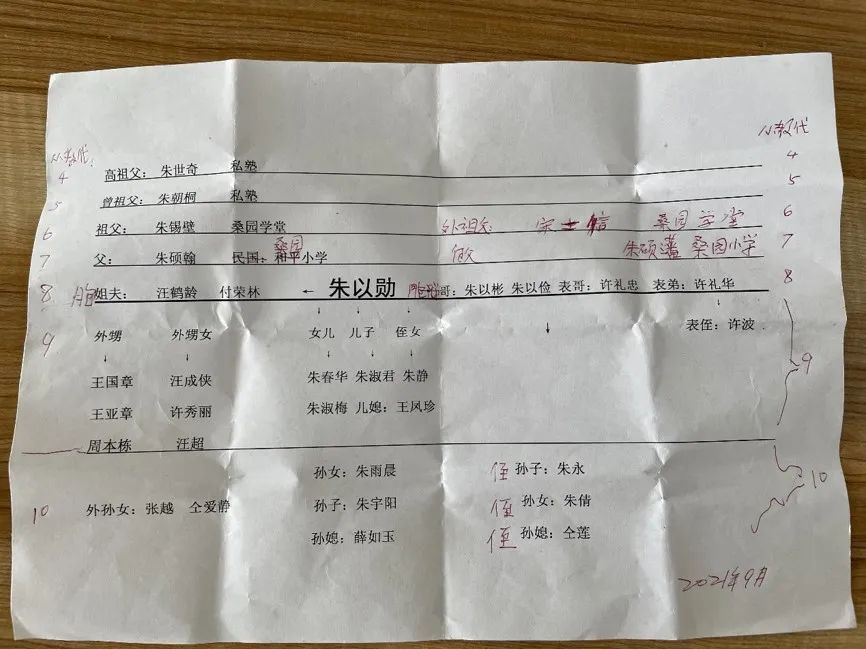 从教代
从教代
4 高祖父：朱世奇 私塾 4
5 曾祖父：朱朝桐 私塾 5
6 祖父：朱锡璧 桑园学堂 外祖父 宋士信 桑园学堂 6
桑园
7 父：朱硕翰 民国、和平小学 朱硕藩 桑园小学 7
8 胞姐夫：汪鹤龄 付荣林 ← 朱以勋 哥：朱以彬 朱以俭 表哥：许礼忠 表弟：许礼华 8
↓ ↓ ↓
9 外甥 外甥女 女儿 儿子 侄女 ↓ 表侄：许波 9
↓ ↓ ↓ ↓ ↓
王国章 汪成侠 朱春华 朱淑君 朱静
王亚章 许秀丽 朱淑梅 儿媳：王凤珍
周本栋 汪超
孙女：朱雨晨 侄孙子：朱永
10 外孙女：张越 仝爱静 孙子：朱宇阳 侄孙女：朱倩 10
孙媳：薛如玉 侄孙媳：仝莲
2021年9月